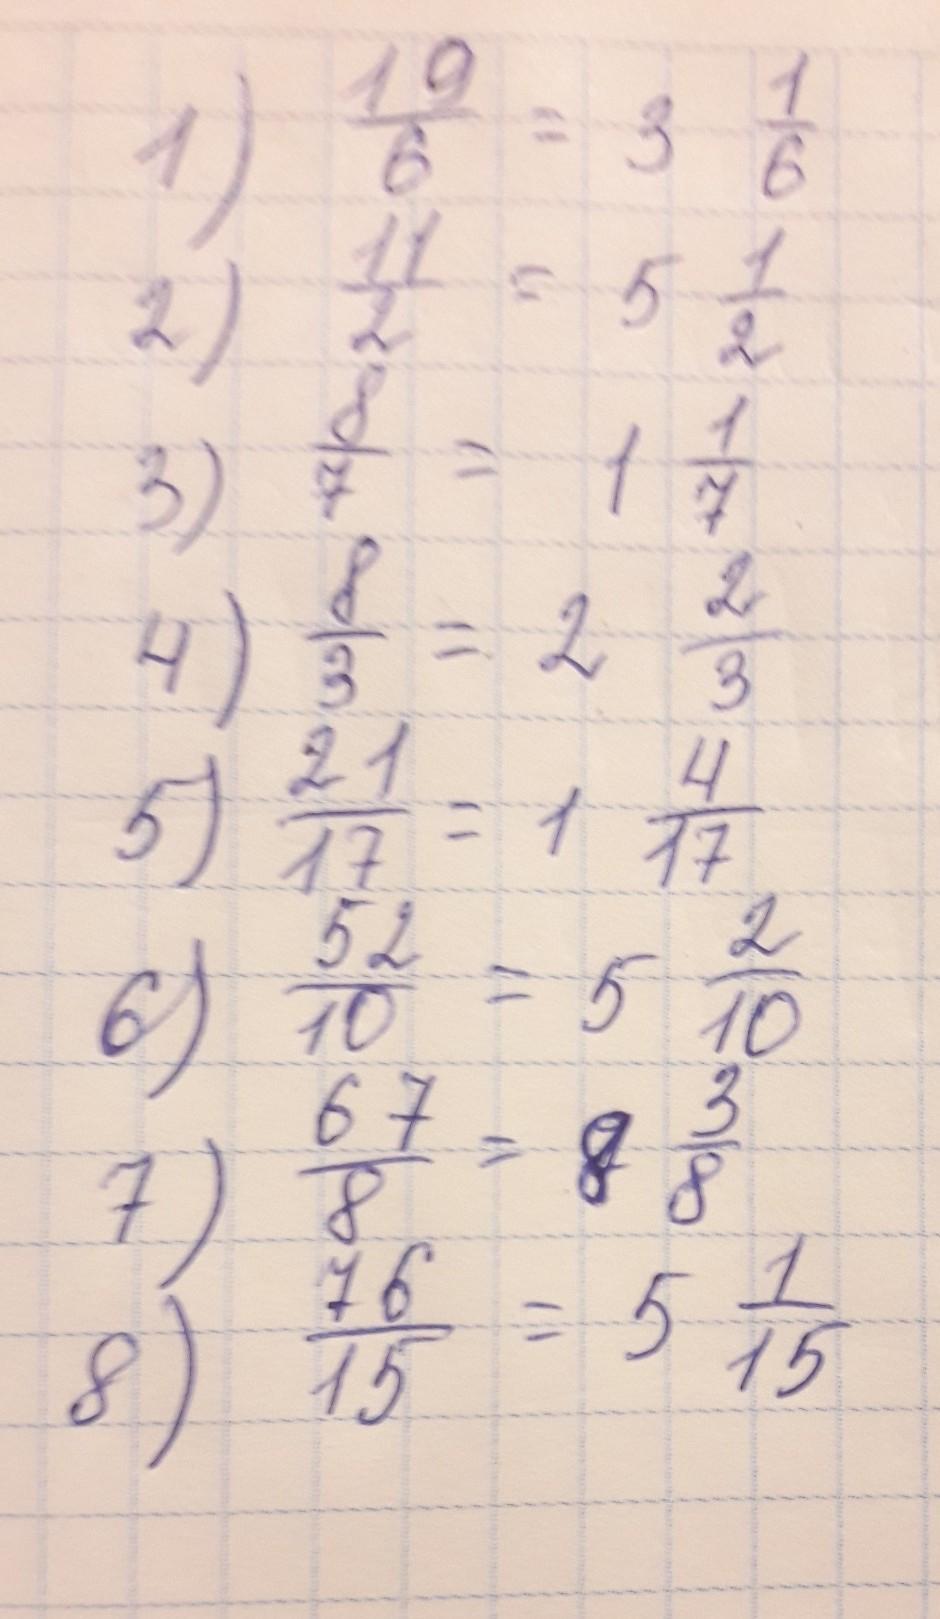 1) 19/6 = 3 1/6
2) 11/2 = 5 1/2
3) 8/7 = 1 1/7
4) 8/3 = 2 2/3
5) 21/17 = 1 4/17
6) 52/10 = 5 2/10
7) 67/8 = 8 3/8
8) 76/15 = 5 1/15